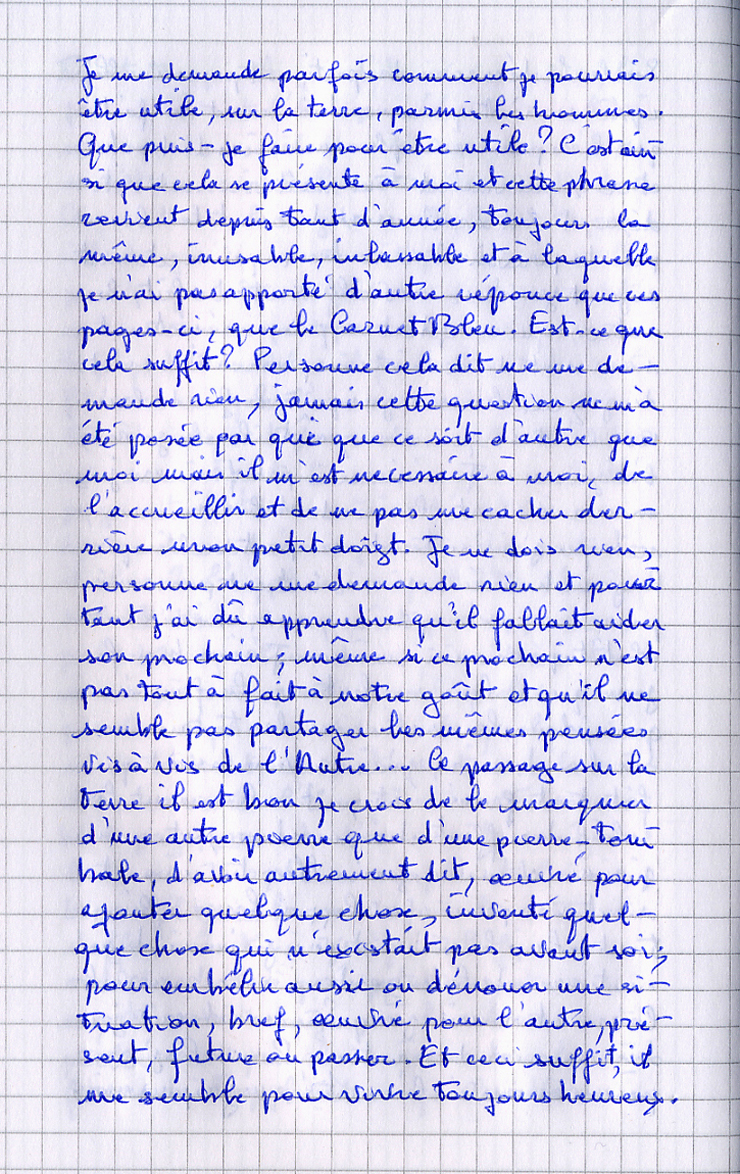 Je me demande parfois comment je pourrais
être utile, sur la terre, parmis les hommes.
Que puis-je faire pour être utile? C'est ain
si que cela se présente à moi et cette phrase
revient depuis tant d'année, toujours la
même, inusable, inlassable et à laquelle
je n'ai pas apporté d'autre réponce que ces
pages-ci, que le Carnet Bleu. Est-ce que
cela suffit? Personne cela dit ne me de-
mande rien, jamais cette question ne m'a
été posée par qui que ce soit d'autre que
moi mais il m'est necessaire à moi, de
l'accueillir et de ne pas me cacher der-
rière mon petit doigt. Je ne dois rien,
personne ne me demande rien et pour
tant j'ai dû apprendre qu'il fallait aider
son prochain; même si ce prochain n'est
pas tout à fait à notre goût et qu'il ne
semble pas partager les mêmes pensées
vis à vis de l'Autre... Ce passage sur la
terre il est bon je crois de le marquer
d'une autre pierre que d'une pierre-tom
bale, d'avoir autrement dit, œuvré pour
ajouter quelque chose, inventé quel-
que chose qui n'existait pas avant soi;
pour embélir aussi ou dénouer une si-
tuation, bref, œuvré pour l'autre, pré-
sent, future ou passer. Et ceci suffit, il
me semble pour vivre toujours heureux.